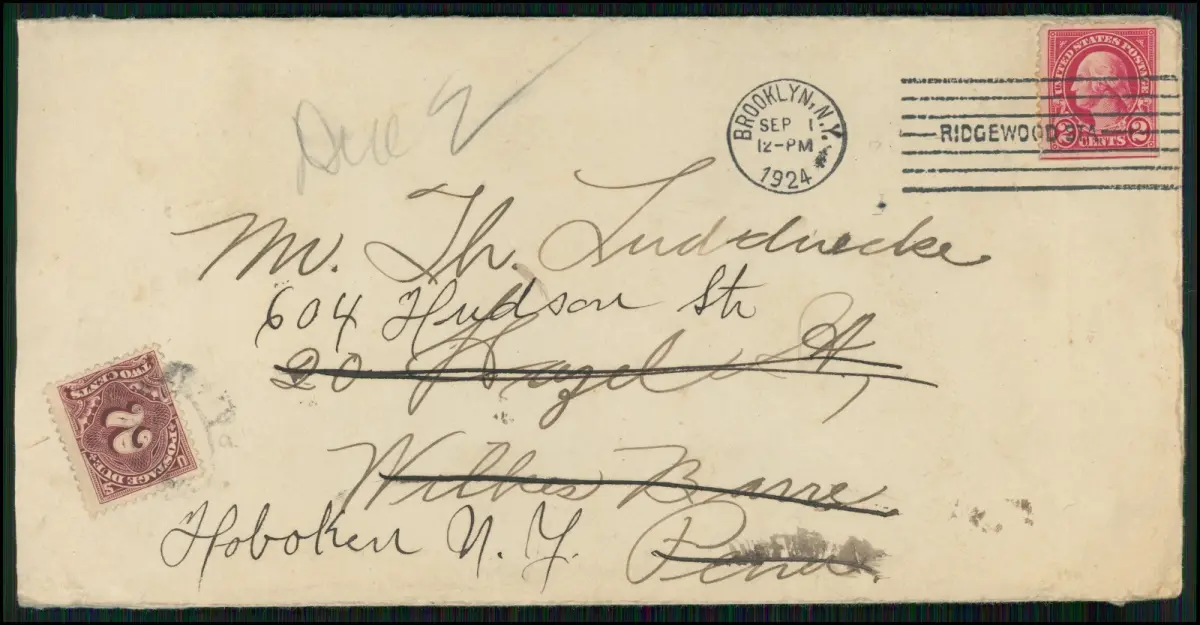 Due 2
BROOKLYN, N.Y.
SEP 1
12-PM
1924
RIDGEWOOD STA.
UNITED STATES POSTAGE
2 2
CENTS
Mr. Th. Luddnecke
604 Hudson Str
20 Hazel St,
Wilkes Barre
Hoboken N. Y.
Penna.
TWO CENTS
2
U POSTAGE DUE S